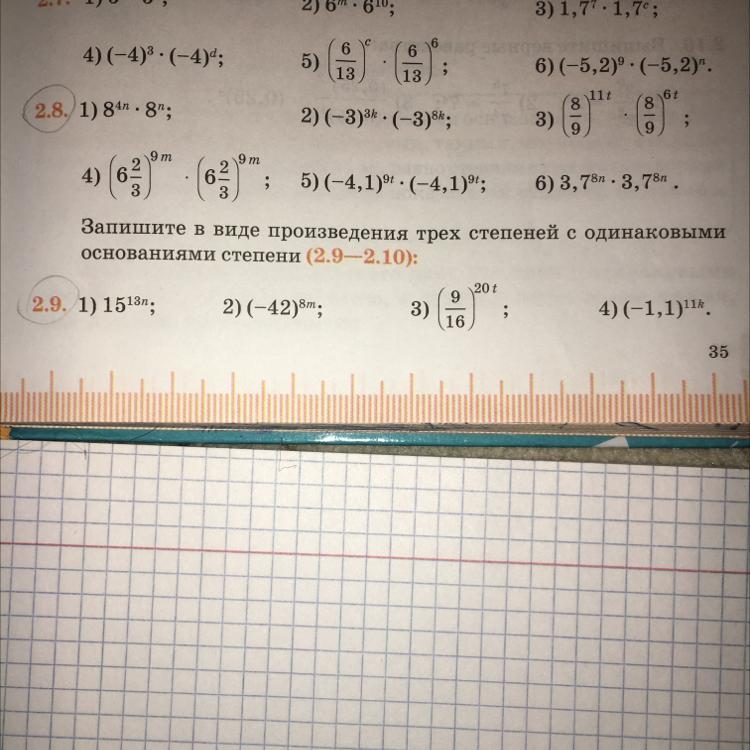 2) 6ᵐ · 6¹⁰; 3) 1,7⁷ · 1,7ᶜ;
4) (−4)³ · (−4)ᵈ; 5) (6/13)ᶜ · (6/13)⁶; 6) (−5,2)⁹ · (−5,2)ⁿ.
2.8. 1) 8⁴ⁿ · 8ⁿ; 2) (−3)³ᵏ · (−3)⁸ᵏ; 3) (8/9)¹¹ᵗ · (8/9)⁶ᵗ;
4) (6 2/3)⁹ᵐ · (6 2/3)⁹ᵐ; 5) (−4,1)⁹ᵗ · (−4,1)⁹ᵗ; 6) 3,7⁸ⁿ · 3,7⁸ⁿ.
Запишите в виде произведения трех степеней с одинаковыми
основаниями степени (2.9—2.10):
2.9. 1) 15¹³ⁿ; 2) (−42)⁸ᵐ; 3) (9/16)²⁰ᵗ; 4) (−1,1)¹¹ᵏ.
35